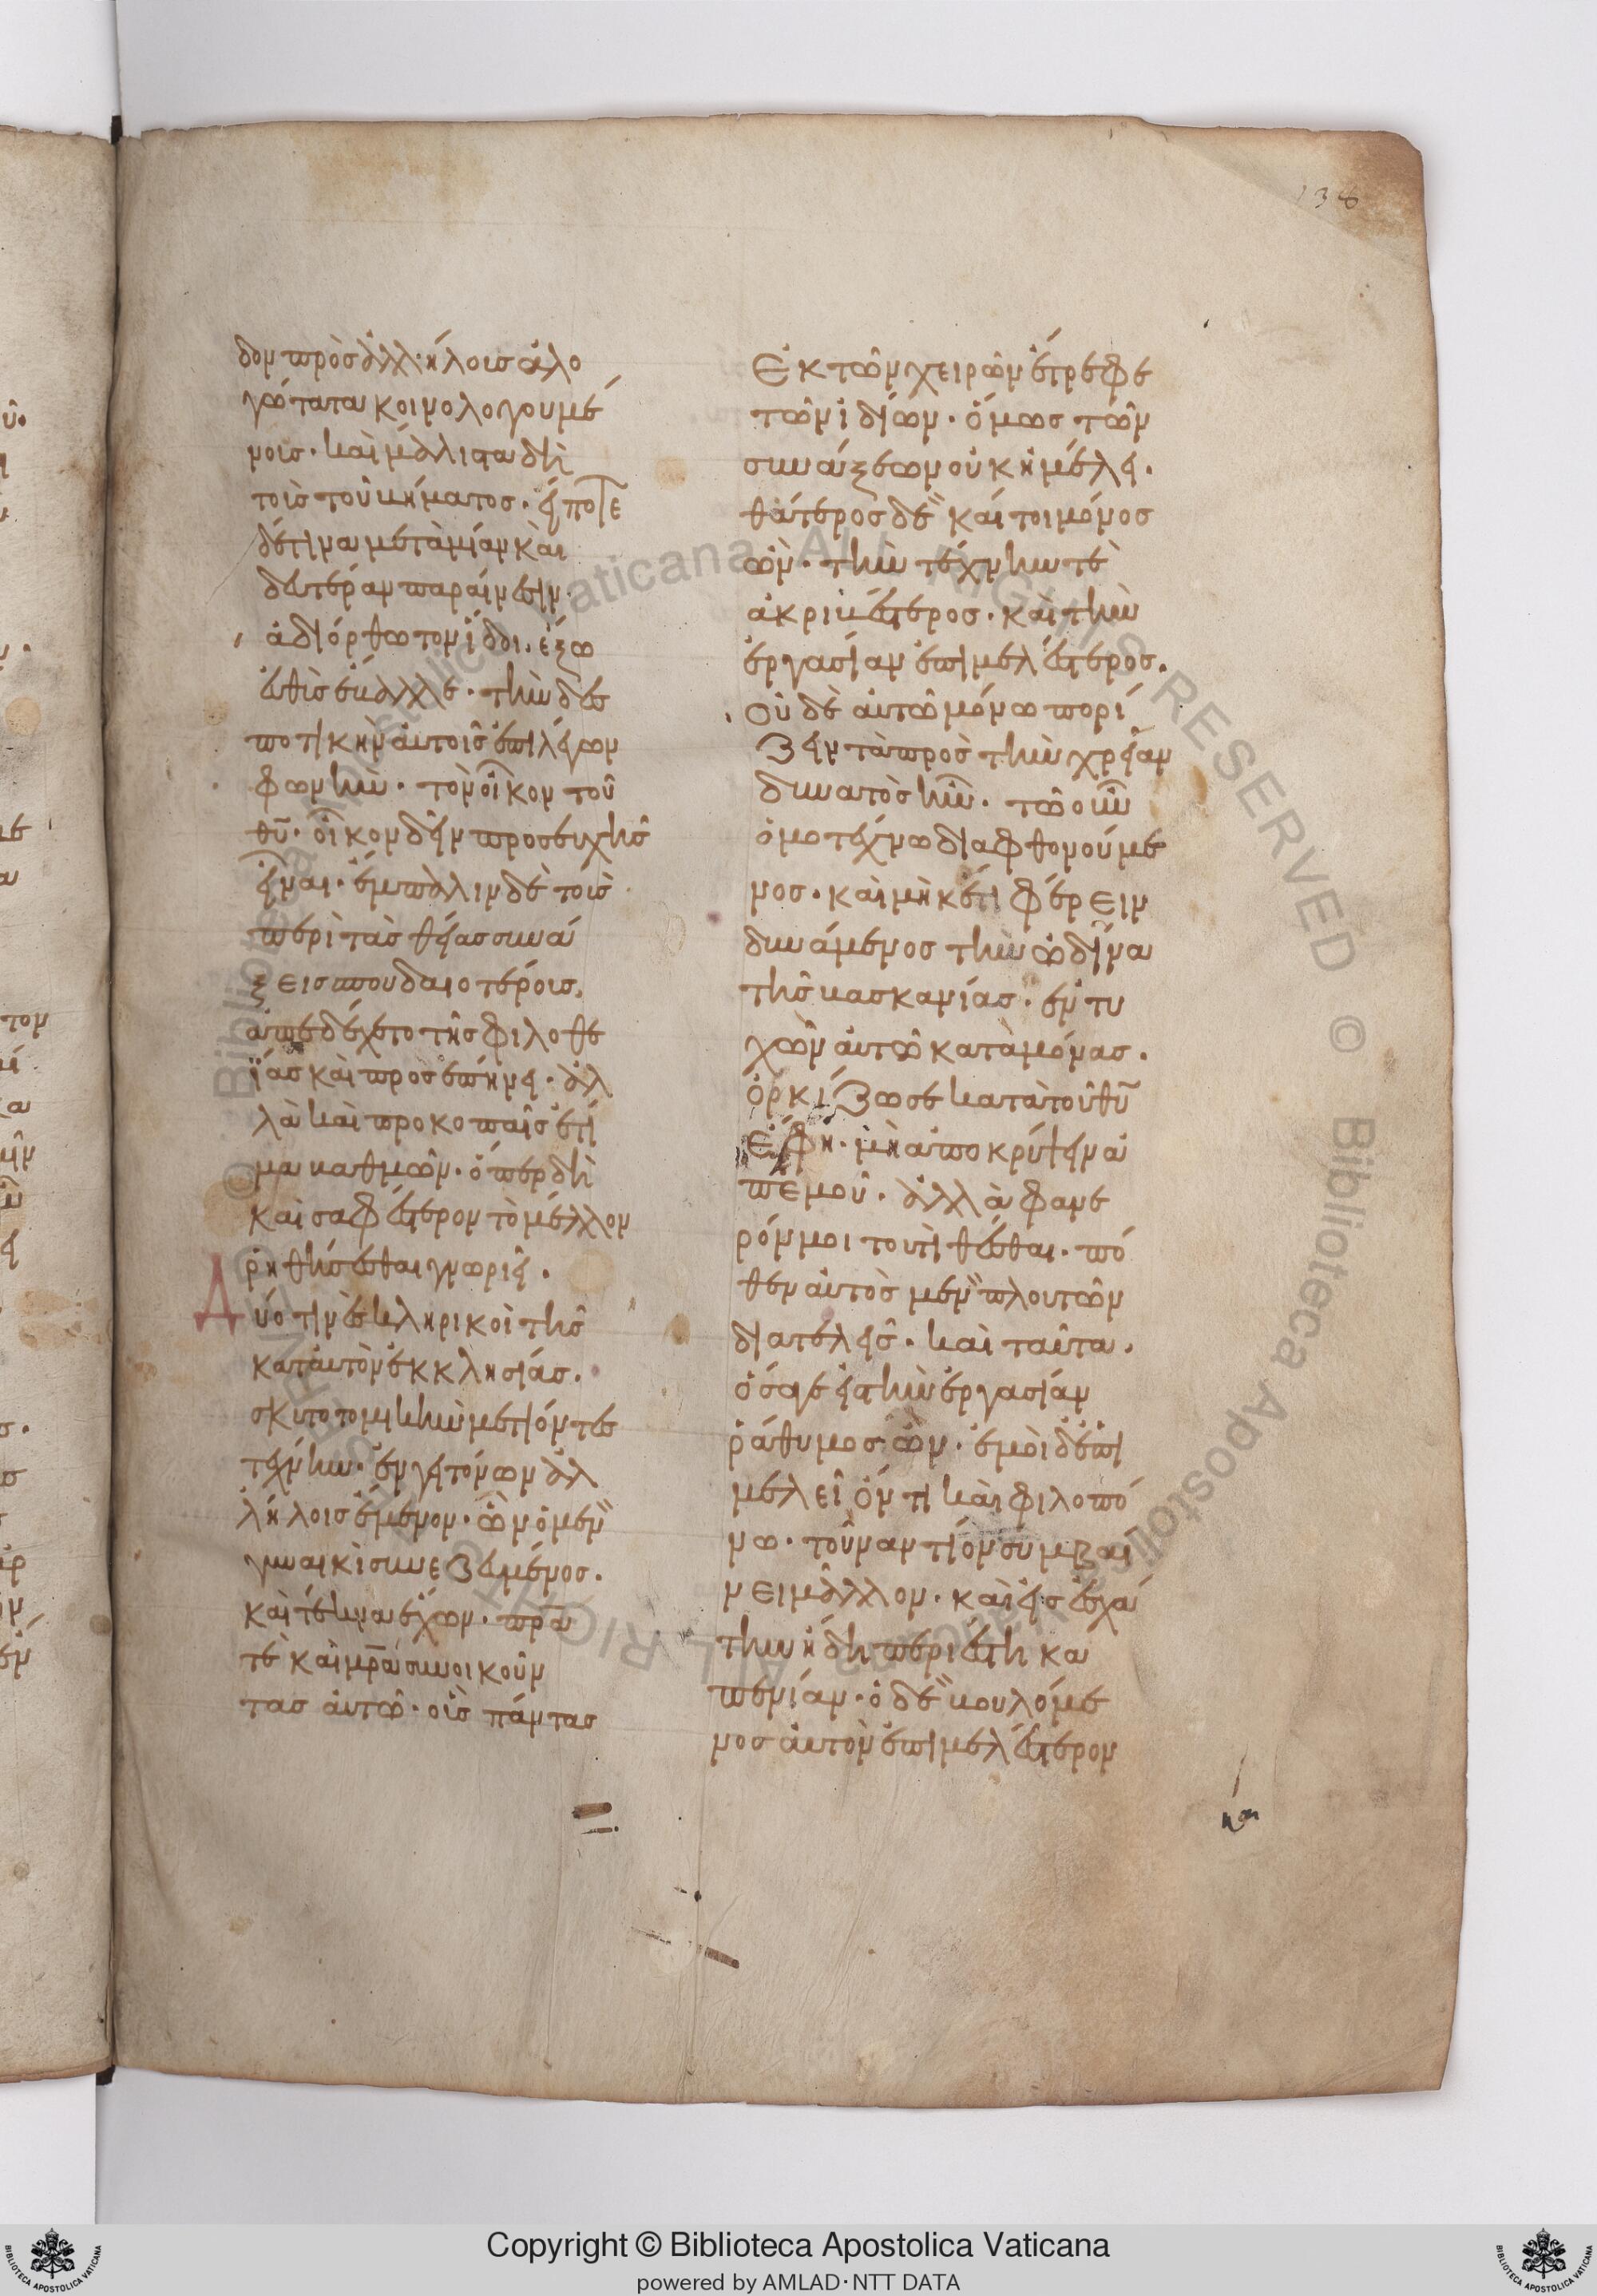 138
δον πρὸς ἀλλήλοις ἀλο
γώτατα κοινολογουμέ
νοις. καὶ μάλιστα δὴ
τοῖς τοῦ βήματος. εἴποτε
δέ τινα μετὰ μίαν καὶ
δευτέραν παραίνεσιν
ἀδιόρθωτον ἴδοι. ἔξω
εὐθὺς ἔβαλλε. τὴν δεσ
ποτικὴν αὐτοῖς ἐπιλέγων
φωνὴν. τὸν οἶκον τοῦ
θῦ. οἶκον δεῖν προσευχῆς
εἶναι. ἔμπαλιν δὲ τοῖς
περὶ τὰς θείας συνά
ξεις σπουδαιοτέροις.
ἀπεδέχετο τῆς φιλοθε
ΐας καὶ προσεπῄνει. ἀλ
λὰ καὶ προκοπαῖς ἐτί
μα βαθμῶν. ὅπερ δὴ
καὶ σαφέστερον τὸ μέλλον
ῥηθήσεσθαι γνωριεῖ.
Δύο τινὲς κληρικοὶ τῆς
κατ αὐτὸν ἐκκλησίας.
σκυτοτομικὴν μετιόντες
τέχνην. ἐν γειτόνων ἀλ
λήλοις ἔμενον. ὧν ὁ μεν
γυναικὶ συνεζευγμένος.
καὶ τέκνα ἔχων. πρᾱ
τὲ καὶ μρᾱ συνοικοῦν
τας αὐτῶ. οὓς πάντας
Ἐκ τῶν χειρῶν ἔτρεφε
τῶν ἰδίων. ὅμως τῶν
συνάξεων οὐκ ἠμέλει.
θάτερος δὲ καίτοι μόνος
ὢν. τὴν τέχνην τὲ
ἀκριβέστερος. καὶ τὴν
ἐργασίαν ἐπιμελέστερος.
οὐδὲ αὐτῶ μόνω πορί
ζειν τὰ πρὸς τὴν χρείαν
δυνατὸς ἦν. τῶ οὖν
ὁμοτέχνω διαφθονούμε
νος. καὶ μηκέτι φέρειν
δυνάμενος τὴν ὠδῖνα
τῆς βασκανίας. ἐντυ
χὼν αὐτῶ καταμόνας.
ὁρκίζω σε κατὰ τοῦ θῦ
ἔφη. μὴ ἀποκρύψειν ἀ
πεμοῦ. ἀλλὰ φανε
ρόν μοι τουτὶ θέσθαι. πό
θεν αὐτὸς μὲν πλουτῶν
διατελεῖς. καὶ ταῦτα.
ὅσα γε εἰς τὴν ἐργασίαν
ῥάθυμος ὤν. ἐμοὶ δὲ ἐπι
μελεῖ ὄντι καὶ φιλοπό
νω. τοὐναντίον συμβαί
νει μᾶλλον. καὶ εἰς ἐσχά
την ἤδη περιέστηκα
πενίαν. ὁ δὲ βουλόμε
νος αὐτὸν ἐπιμελέστερον
Copyright © Biblioteca Apostolica Vaticana
powered by AMLAD·NTT DATA